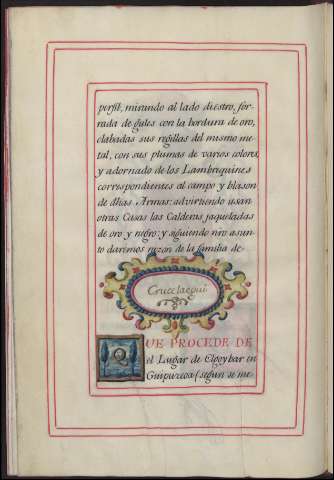 perfil, mirando al lado diestro, for-
rada de gules con la bordura de oro,
clabadas sus regillas del mismo me-
tal, con sus plumas de varios colores,
y adornado de los Lambrequines
correspondientes al campo y blason
de dhas Armas: advirtiendo usan
otras Casas las Calderas jaqueladas
de oro y negro: y siguiendo nro asun-
to daremos razon de la familia de
Crucelaegui
QUE PROCEDE DE
el Lugar de Elgoybar en
Guipuzcoa (segun se me-